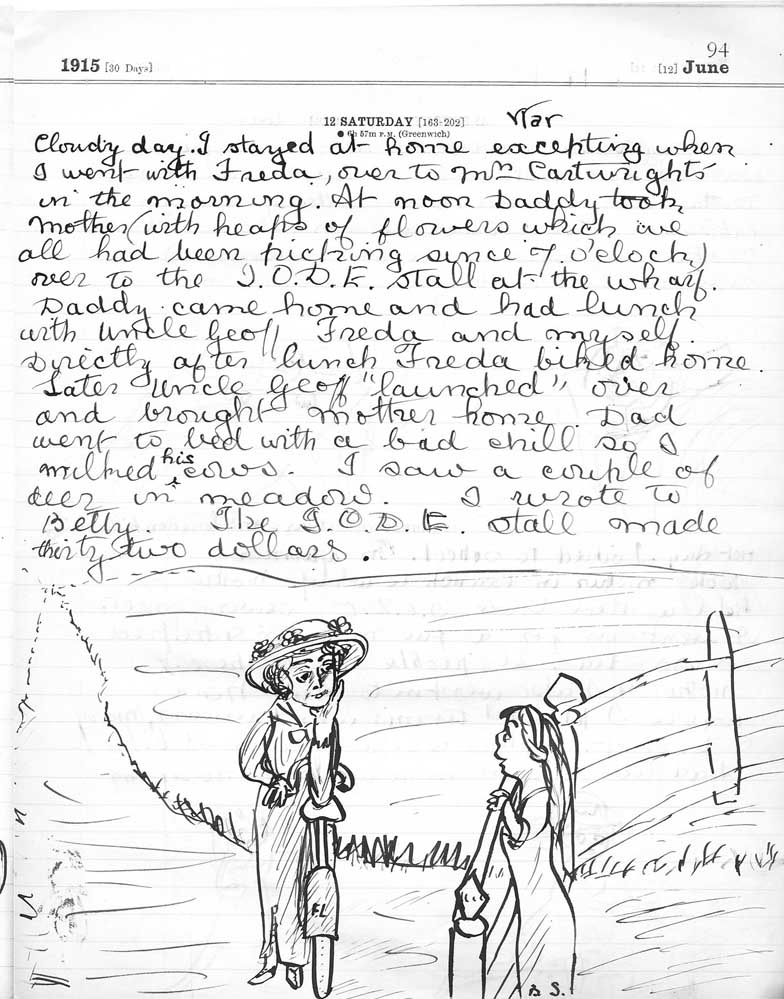 94
1915 [30 Days] [12] June
12 SATURDAY [163-202] War
● 6h 57m P.M. (Greenwich)
Cloudy day. I stayed at home excepting when
I went with Freda, over to Mrs Cartwrights
in the morning. At noon Daddy took
Mother (with heaps of flowers which we
all had been picking since 7. o'clock)
over to the I.O.D.E. stall at the wharf.
Daddy came home and had lunch
with Uncle Geoff Freda and myself.
Dyrectly after lunch Freda biked home.
Later Uncle Geoff "launched" over
and brought Mother home. Dad
went to bed with a bad chill so I
milked his cows. I saw a couple of
deer in meadow. I wrote to
Betty. The I.O.D.E. stall made
thirty two dollars.
FL
B S.